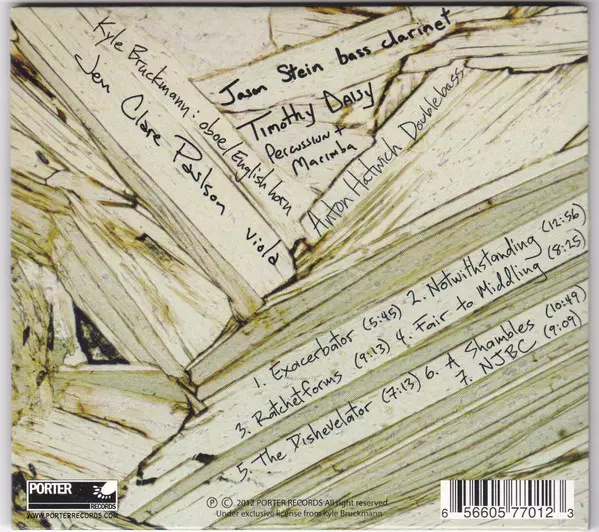 Kyle Bruckmann: oboe/English horn
Jen Clare Paulson
viola
Jason Stein bass clarinet
Timothy Daisy
Percussion +
Marimba
Anton Hatwich Doublebass
1. Exacerbator (5:45) 2. Notwithstanding (12:56)
3. Ratchetforms (9:13) 4. Fair to Middling (8:25)
5. The Dishevelator (7:13) 6. A Shambles (10:49)
7. NJBC (9:09)
PORTER
RECORDS
WWW.PORTERRECORDS.COM
℗ © 2012 PORTER RECORDS All right reserved.
Under exclusive license from Kyle Bruckmann
6 56605 77012 3